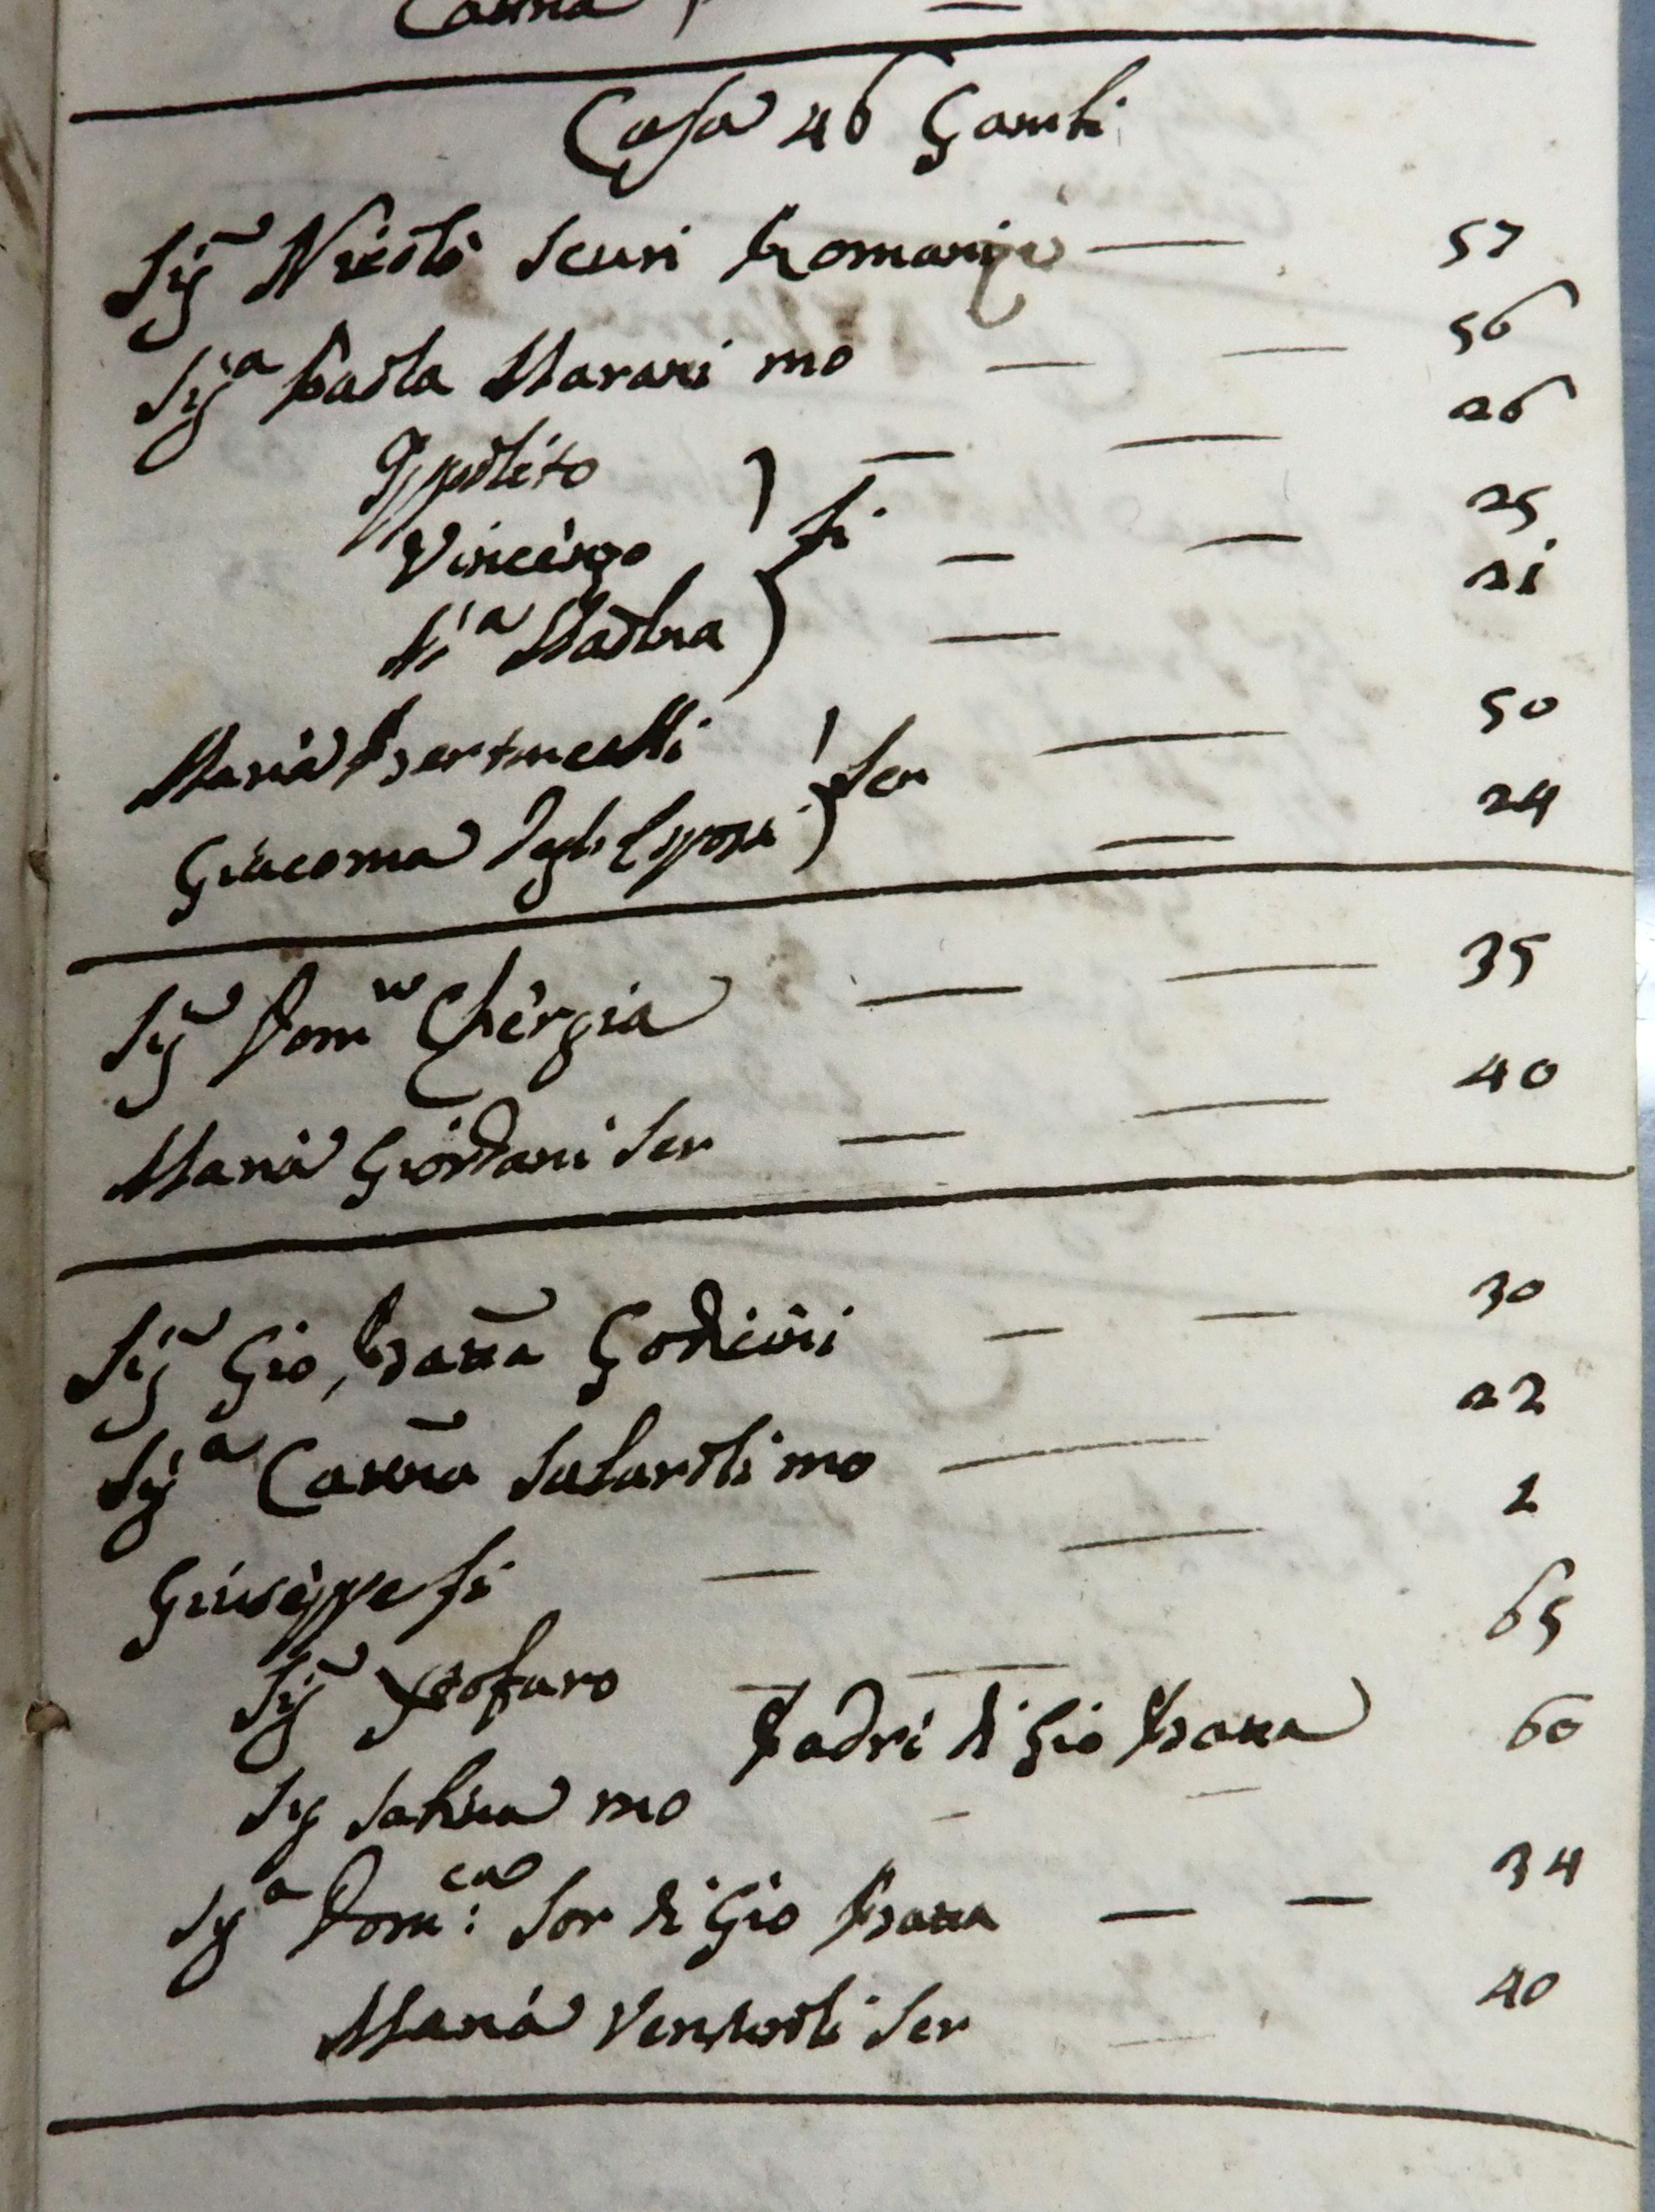 Casa 46 Gambi
Sig Nicolò Scuri Romani 57
Sigª Paola Marani mo 56
Ippolito 26
Vincenzo fi 25
Siª Madlna 21
Maria Bertucelli 50
Giacoma degli Esposi Ser 24
Sig Domco Chergia 35
Maria Giordani Ser 40
Sig Gio, Batta Godicini 30
Sigª Catna Salaroli mo 22
Giuseppe fi 2
Sig Xtofaro 65
Padri di Gio Batta
Sig Sabina mo 60
Sigª Dom:ca Sor di Gio Batta 34
Maria Venturoli Ser 40